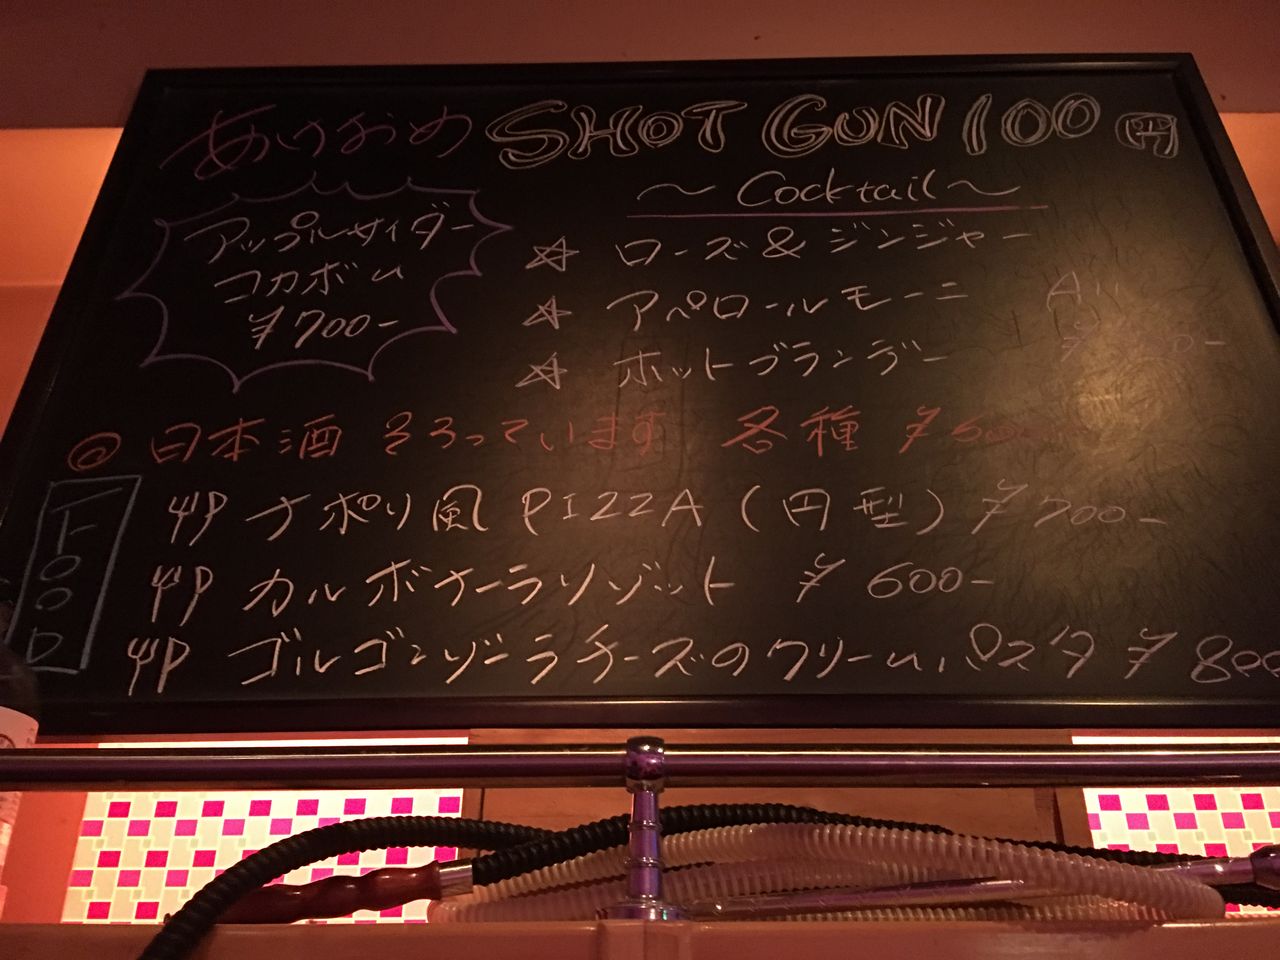 あけおめ SHOT GUN 100円
アップルサイダー
コカボム
¥700-
～Cocktail～
☆ ローズ&ジンジャー
☆ アペロールモーニ
☆ ホットブランデー
All
@ 日本酒 そろっています 各種 ¥500
FOOD
ナポリ風PIZZA(円型) ¥700-
カルボナーラリゾット ¥600-
ゴルゴンゾーラチーズのクリームパスタ ¥800